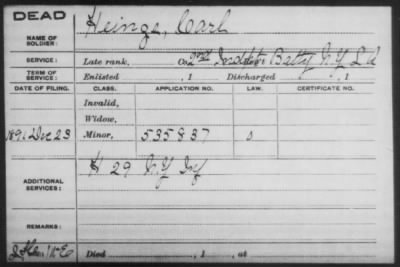 DEAD
NAME OF SOLDIER: Heinze, Carl
SERVICE: Late rank, Co. 2nd Indpt Batty N.Y. L.A.
TERM OF SERVICE: Enlisted , 1 Discharged , 1
DATE OF FILING. CLASS. APPLICATION NO. LAW. CERTIFICATE NO.
Invalid,
Widow,
1891 Dec 23 Minor, 535837
ADDITIONAL SERVICES: H 29 N.Y. Inf
REMARKS:
Died , 1 , at